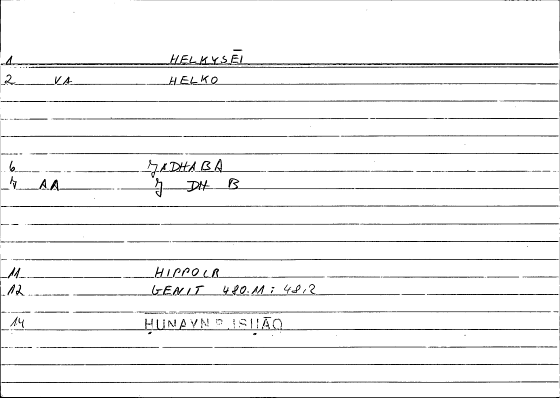 1 HELKYSEĪ
2 VA HELKO
6 ʒADHABA
7 AA ʒ DH B
11 HIPPOCR
12 GENIT 480.11 : 48,2
14 ḤUNAYN B. ISḤĀQ